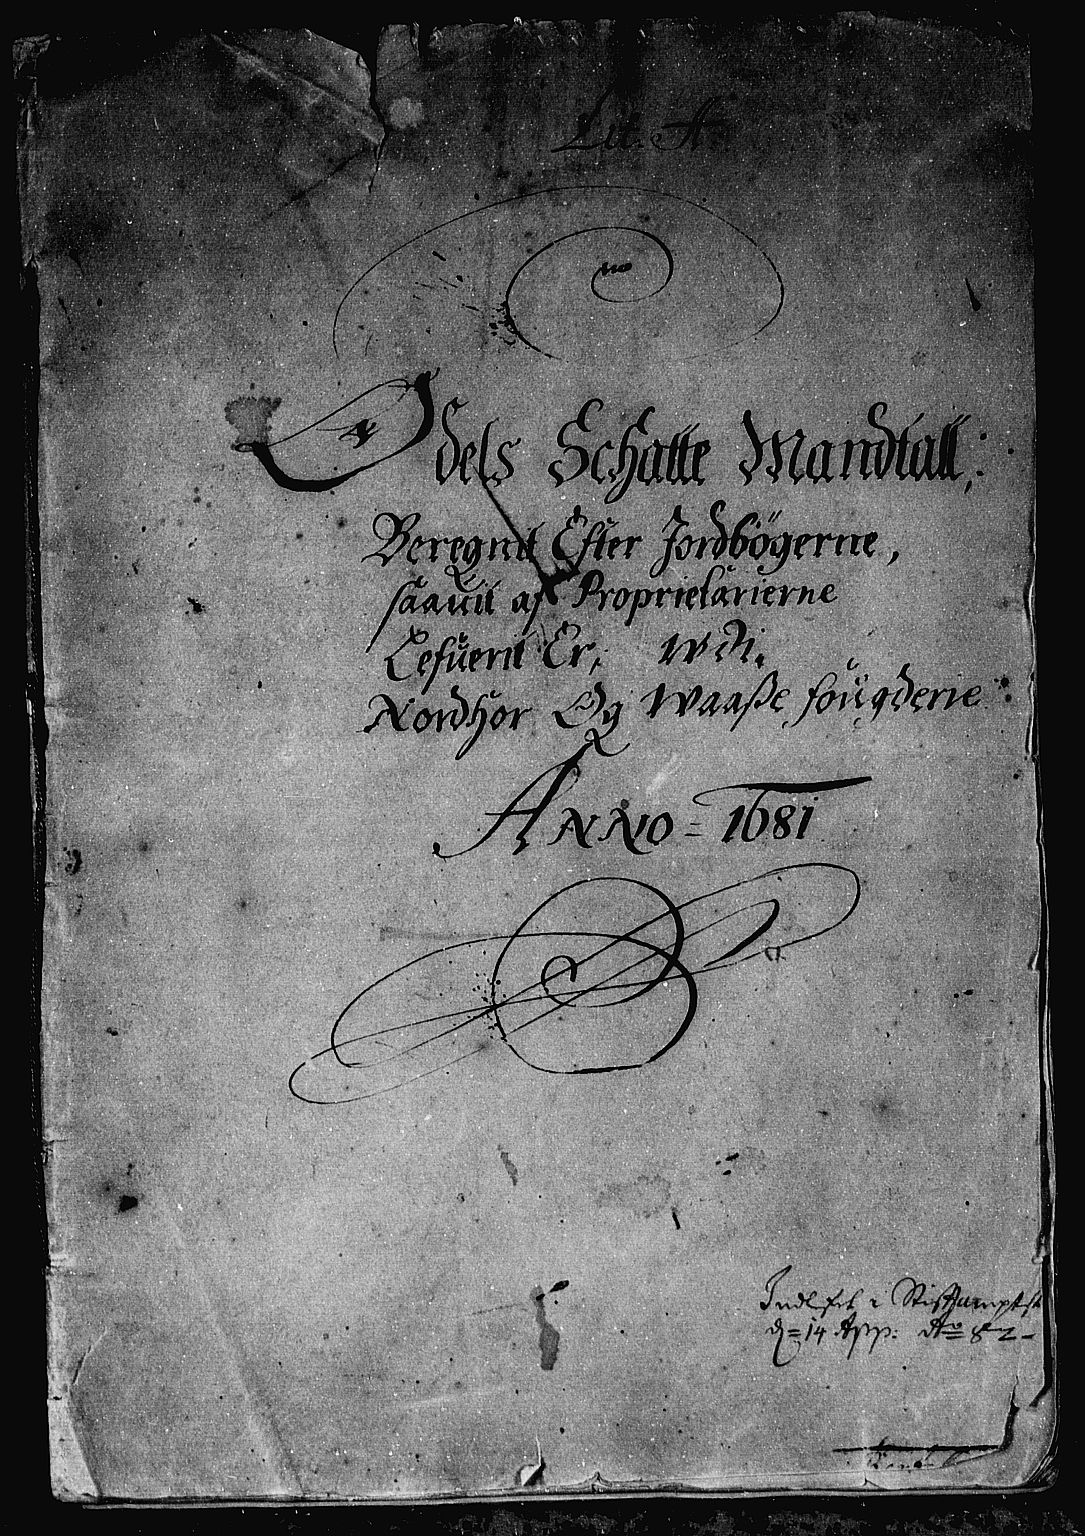 Lit. A.
Odels Schatte Mandtall;
Beregnit Efter Jordbögerne,
saauit af Proprietarierne
Lefuerit Er, wdi.
Nordhor Og Waaße fougderie
ANNO = 1681
i Stifftampts
d = 14 App: Ao 82 -